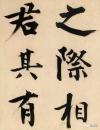 之際相
君其有